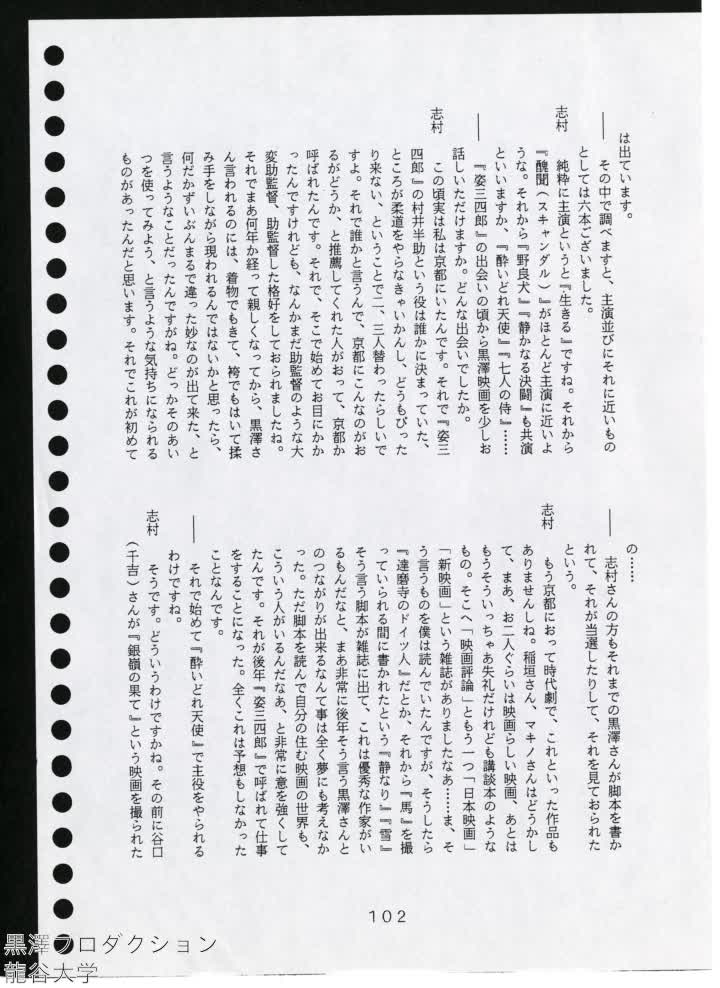 は出ています。
――　その中で調べますと、主演並びにそれに近いもの
としては六本ございました。
志村　純粋に主演というと『生きる』ですね。それから
『醜聞（スキャンダル）』がほとんど主演に近いよ
うな。それから『野良犬』『静かなる決闘』も共演
といいますか、『酔いどれ天使』『七人の侍』……
――　『姿三四郎』の出会いの頃から黒澤映画を少しお
話しいただけますか。どんな出会いでしたか。
志村　この頃実は私は京都にいたんです。それで『姿三
四郎』の村井半助という役は誰かに決まっていた、
ところが柔道をやらなきゃいかんし、どうもぴった
り来ない、ということで二、三人替わったらしいで
すよ。それで誰かと言うんで、京都にこんなのがお
るがどうか、と推薦してくれた人がおって、京都か
呼ばれたんです。それで、そこで始めてお目にかか
ったんですけれども、なんかまだ助監督のような大
変助監督、助監督した格好をしておられましたね。
それでまあ何年か経って親しくなってから、黒澤さ
ん言われるのには、着物でもきて、袴でもはいて揉
み手をしながら現われるんではないかと思ったら、
何だかずいぶんまるで違った妙なのが出て来た、と
言うようなことだったんですがね。どっかそのあい
つを使ってみよう、と言うような気持ちになられる
ものがあったんだと思います。それでこれが初めて
の……
――　志村さんの方もそれまでの黒澤さんが脚本を書か
れて、それが当選したりして、それを見ておられた
という。
志村　もう京都におって時代劇で、これといった作品も
ありませんしね。稲垣さん、マキノさんはどうかし
て、まあ、お二人ぐらいは映画らしい映画、あとは
もうそういっちゃあ失礼だけれども講談本のような
もの。そこへ「映画評論」ともう一つ「日本映画」
「新映画」という雑誌がありましたなあ……ま、そ
う言うものを僕は読んでいたんですが、そうしたら
『達磨寺のドイツ人』だとか、それから『馬』を撮
っていられる間に書かれたという『静なり』『雪』
そう言う脚本が雑誌に出て、これは優秀な作家がい
るもんだなと、まあ非常に後年そう言う黒澤さんと
のつながりが出来るなんて事は全く夢にも考えなか
った。ただ脚本を読んで自分の住む映画の世界も、
こういう人がいるんだなあ、と非常に意を強くして
たんです。それが後年『姿三四郎』で呼ばれて仕事
をすることになった。全くこれは予想もしなかった
ことなんです。
――　それで始めて『酔いどれ天使』で主役をやられる
わけですね。
志村　そうです。どういうわけですかね。その前に谷口
（千吉）さんが『銀嶺の果て』という映画を撮られた
102
黒澤プロダクション
龍谷大学